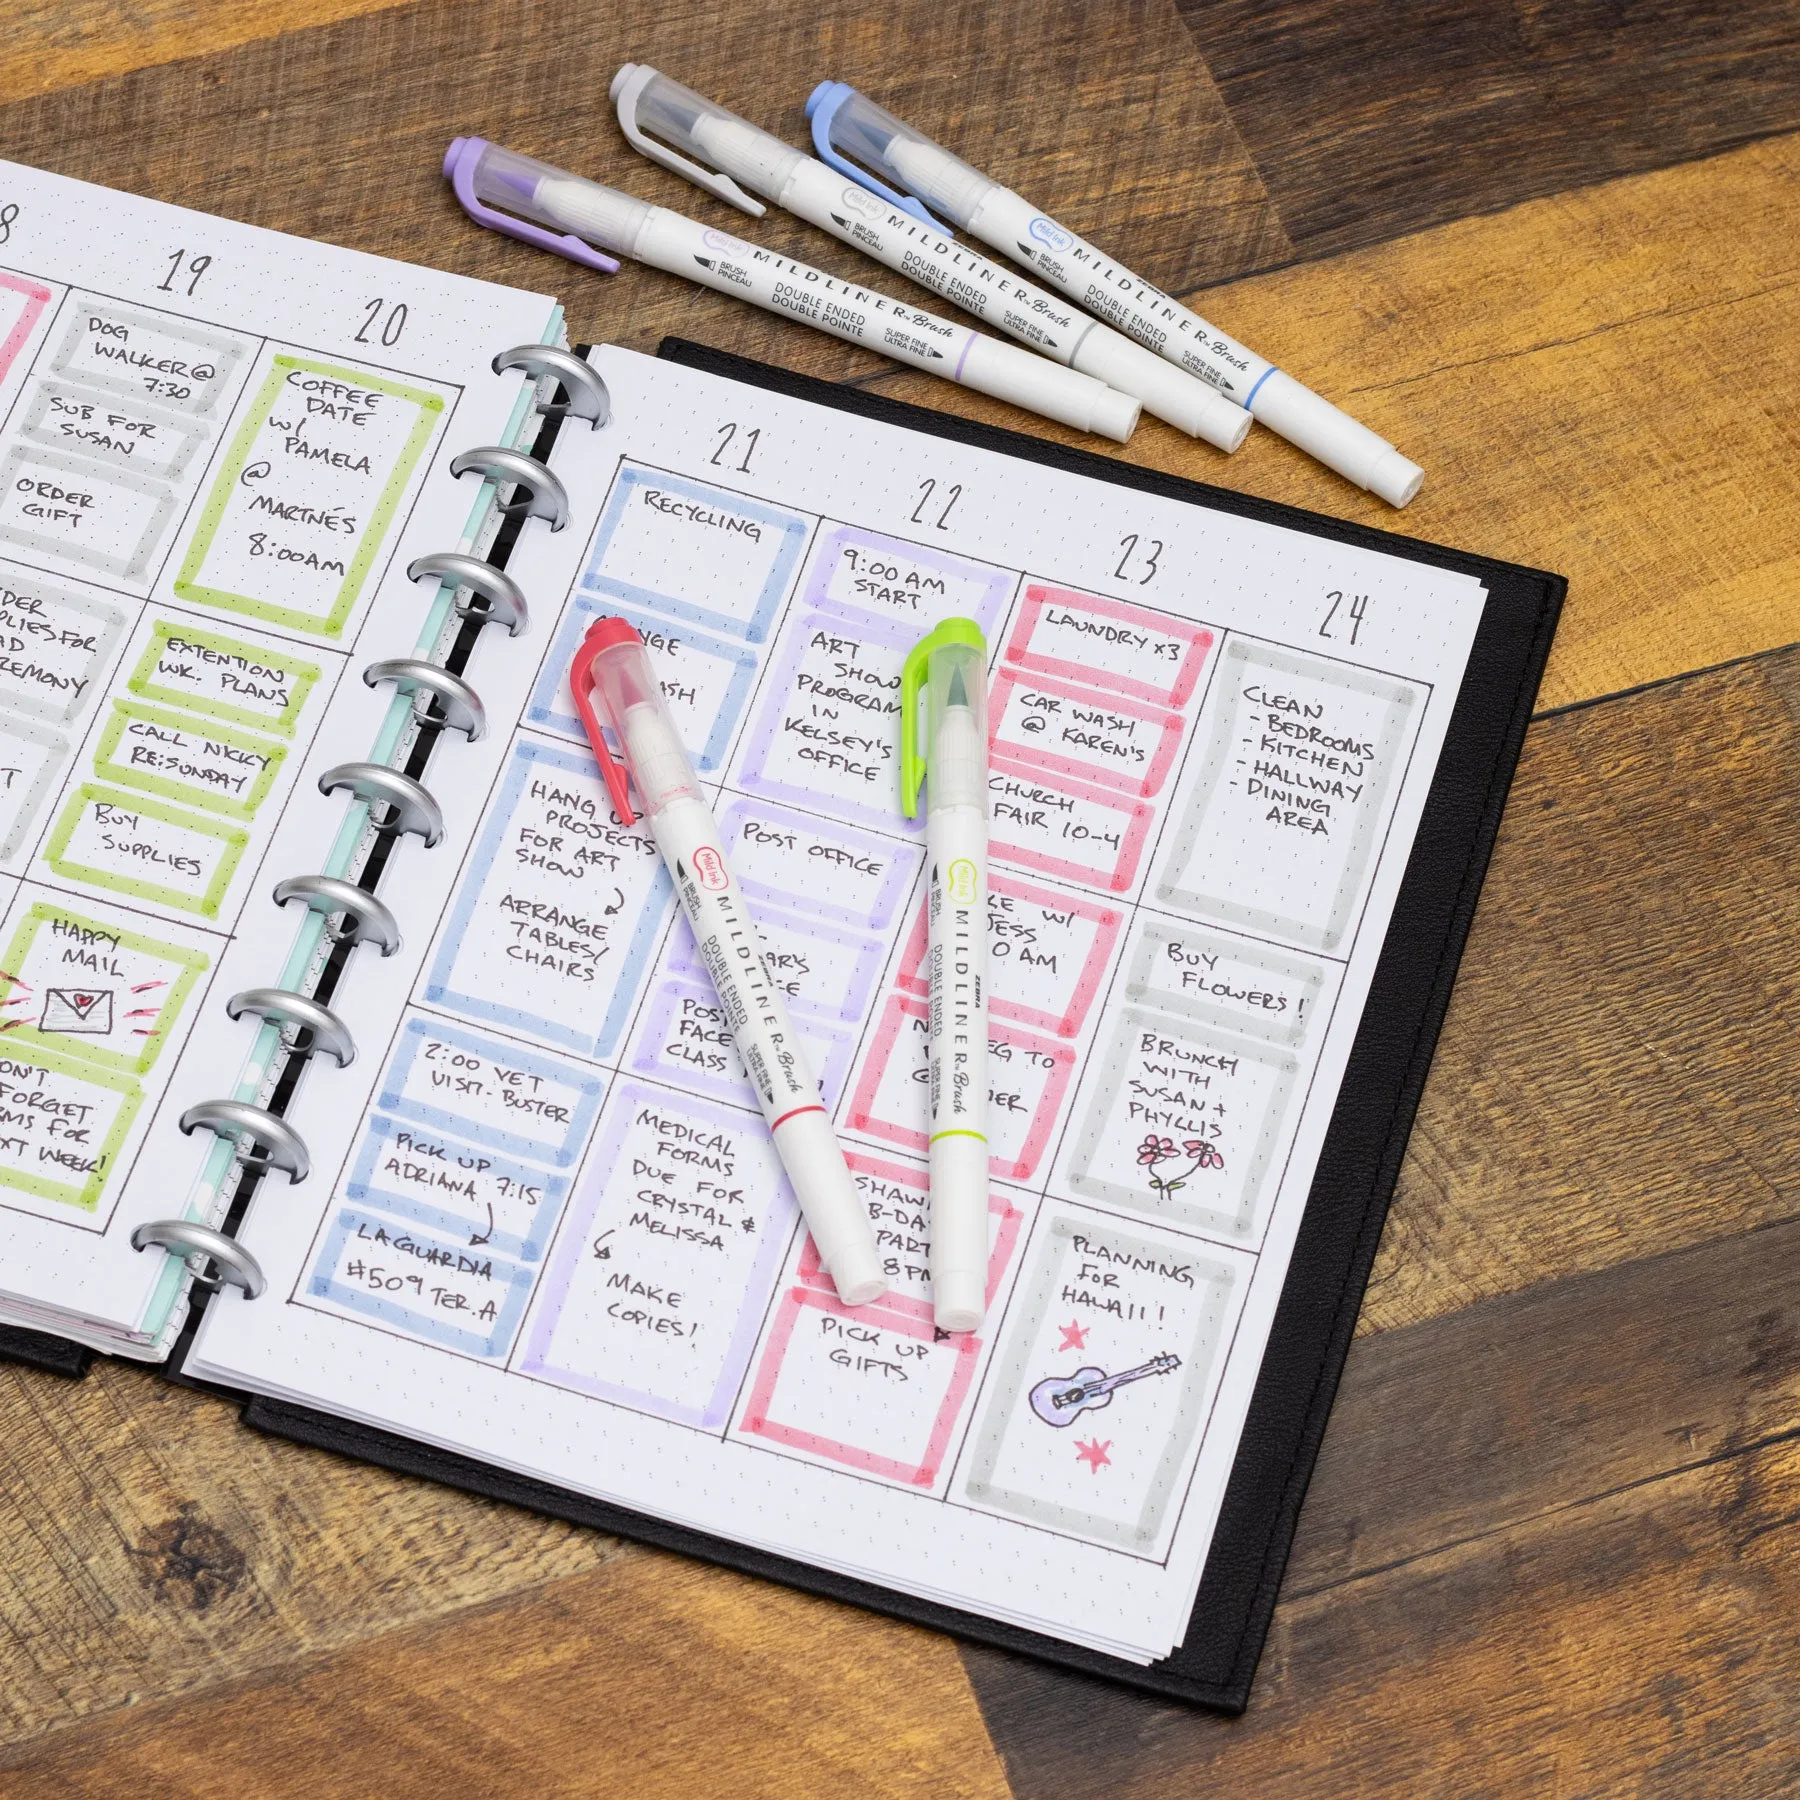 8
19
20
DOG
WALKER@
7:30
SUB FOR
SUSAN
ORDER
GIFT
COFFEE
DATE
W/
PAMELA
@
MARTNÉS
8:00AM
DER
PLIES FOR
AD
REMONY
T
EXTENTION
WK. PLANS
CALL NICKY
RE:SUNDAY
BUY
SUPPLIES
HAPPY
MAIL
ON'T
FORGET
RMS FOR
XT WEEK!
21
22
23
24
RECYCLING
NGE
ASH
HANG UP
PROJECTS
FOR ART
SHOW
ARRANGE
TABLES/
CHAIRS
2:00 VET
VISIT-BUSTER
PICK UP
ADRIANA 7:15
LAGUARDIA
#509 TER.A
9:00 AM
START
ART
SHOW
PROGRAM
IN
KELSEY'S
OFFICE
POST OFFICE
ARK'S
LE
POS
FACE
CLASS
MEDICAL
FORMS
DUE FOR
CRYSTAL &
MELISSA
MAKE
COPIES!
LAUNDRY x3
CAR WASH
@ KAREN'S
CHURCH
FAIR 10-4
KE W/
JESS
0 AM
N EG TO
@
MER
SHAW
B-DA
PART
8 PM
PICK UP
GIFTS
CLEAN
- BEDROOMS
- KITCHEN
- HALLWAY
- DINING
AREA
BUY
FLOWERS!
BRUNCH
WITH
SUSAN +
PHYLLIS
PLANNING
FOR
HAWAII!
Mild Ink
BRUSH
PINCEAU
ZEBRA
MILDLINER™ Brush
DOUBLE ENDED
DOUBLE POINTE
SUPER FINE
ULTRA FINE
Mild Ink
BRUSH
PINCEAU
ZEBRA
MILDLINER™ Brush
DOUBLE ENDED
DOUBLE POINTE
SUPER FINE
ULTRA FINE
Mild Ink
BRUSH
PINCEAU
ZEBRA
MILDLINER™ Brush
DOUBLE ENDED
DOUBLE POINTE
SUPER FINE
ULTRA FINE
Mild Ink
BRUSH
PINCEAU
ZEBRA
MILDLINER™ Brush
DOUBLE ENDED
DOUBLE POINTE
SUPER FINE
ULTRA FINE
Mild Ink
BRUSH
PINCEAU
ZEBRA
MILDLINER™ Brush
DOUBLE ENDED
DOUBLE POINTE
SUPER FINE
ULTRA FINE